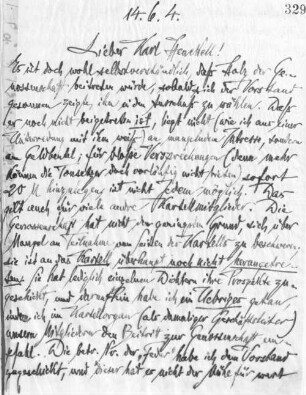 329
14. 6. 4.
Lieber Karl Henckell!
Es ist doch wohl selbstverständlich, daß Holz der Ge-
nossenschaft beitreten würde, sobald sich der Vorstand
geneigt zeigte, ihn in den Ausschuß zu wählen. Daß
er noch nicht beigetreten ist, liegt nicht (wie ich aus einer
Unterredung mit ihm weiß) an mangelndem Interesse, sondern
an Geldbeutel; für bloße Versprechungen (denn mehr
können die Tonsetzer doch vorläufig nicht bieten) sofort
20 M hinzulegen ist nicht jedem möglich. Das
gilt auch für viele andre Kartellmitglieder. Die
Genossenschaft hat nicht den geringsten Grund, sich über
Mangel an Teilnahme von seiten des Kartells zu beschweren;
sie ist an das Kartell überhaupt noch nicht herangetre-
ten. Sie hat lediglich einzelnen Dichtern ihre Prospekte zu-
geschickt, und daraufhin habe ich ein Uebriges getan,
indem ich im Kartellorgan (als damaliger Geschäftsleiter)
unsern Mitgliedern den Beitritt zur Genossenschaft em-
pfahl. Die betr. No. der "Feder" habe ich dem Vorstand
zugeschickt, und dieser hat es nicht der Mühe für wert